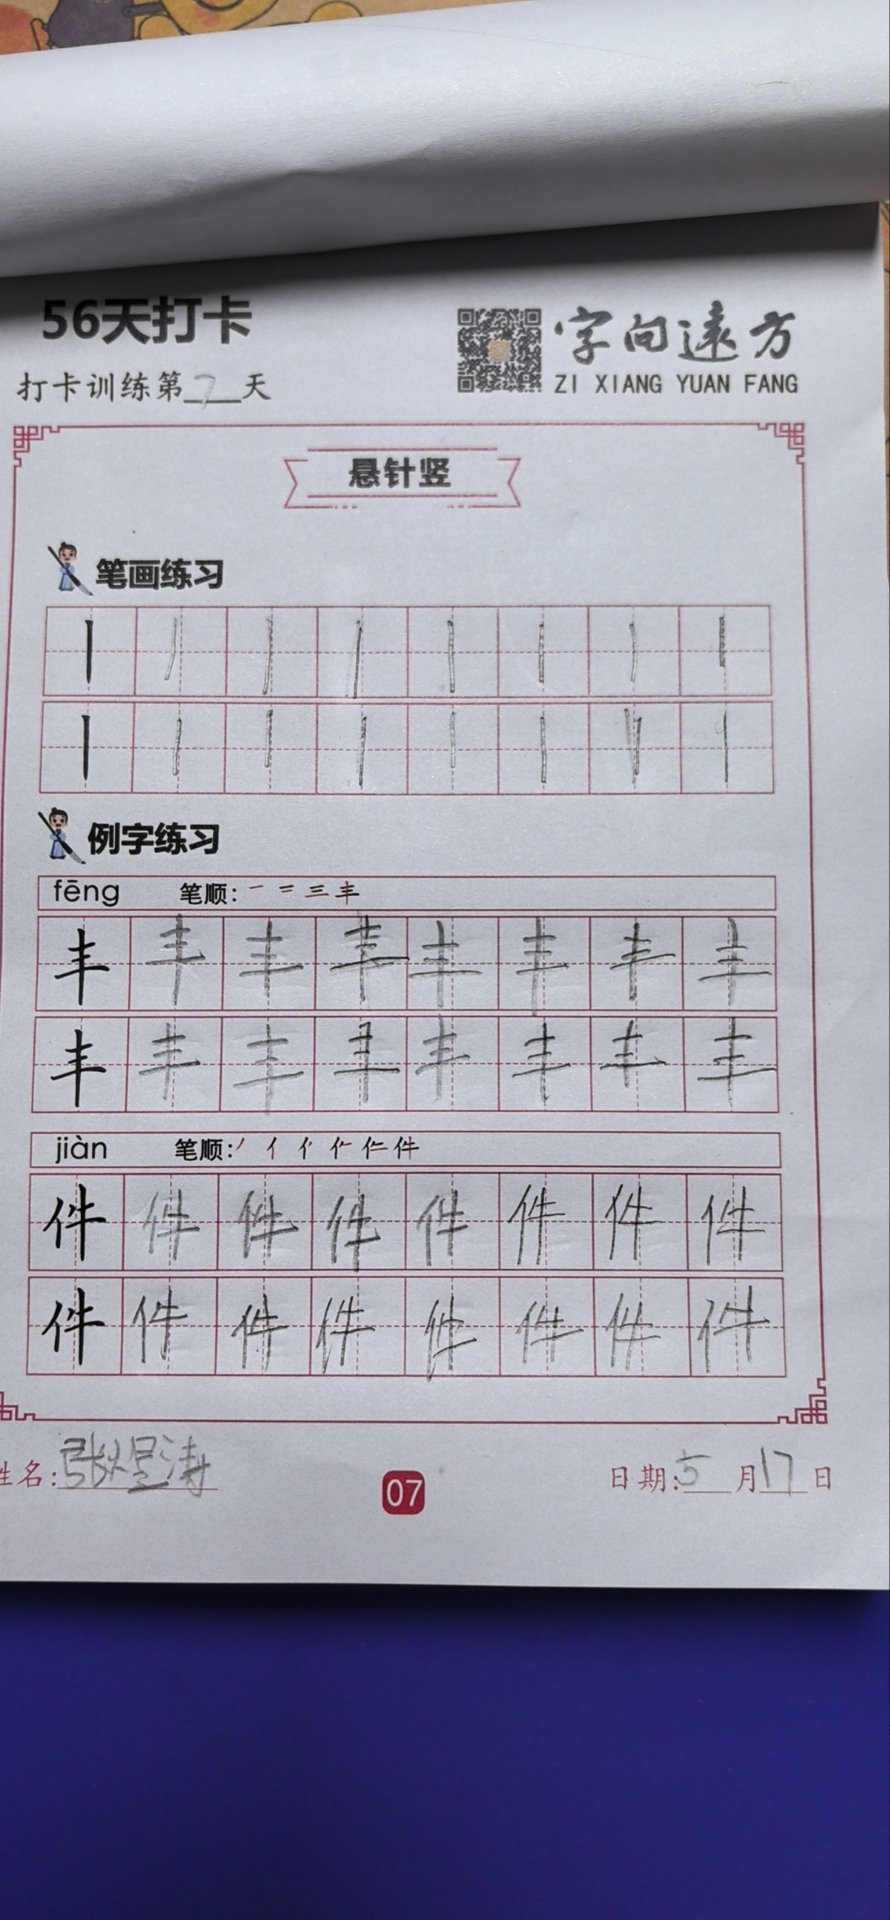 56天打卡
打卡训练第7天
字向远方
ZI XIANG YUAN FANG
悬针竖
笔画练习
例字练习
fēng 笔顺: 一 二 三 丰
丰 丰 丰 丰 丰 丰 丰 丰
丰 丰 丰 丰 丰 丰 丰 丰
jiàn 笔顺: 丿 亻 件
件 件 件 件 件 件 件 件
件 件 件 件 件 件 件 件
姓名:张煜涛
07
日期:5月17日